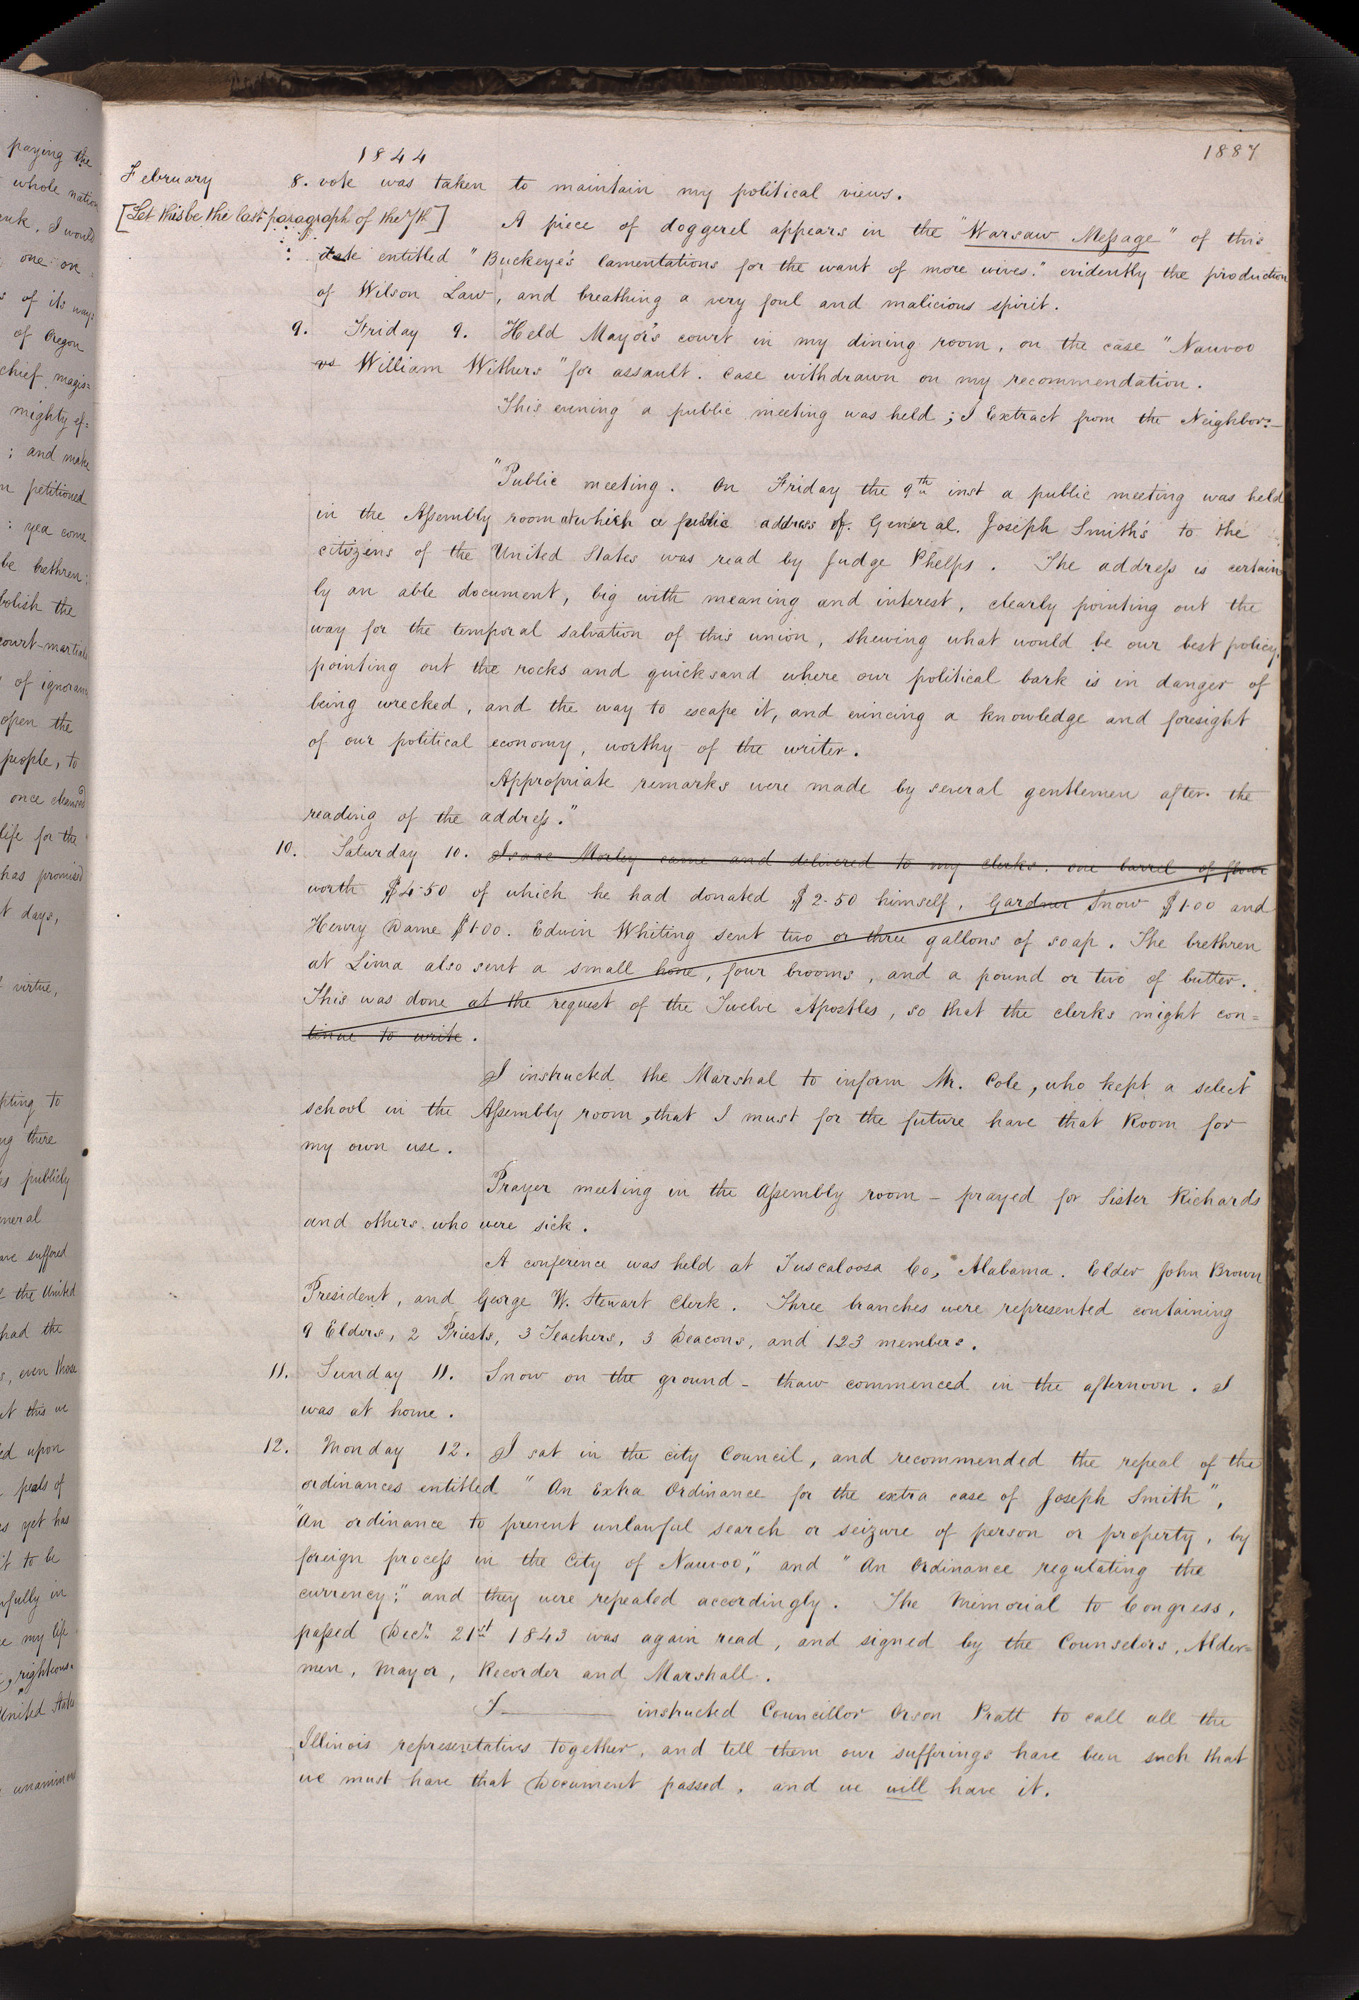 1844
1887
February 8. vote was taken to maintain my political views.
[Let this be the last paragraph of the 7th]
A piece of doggerel appears in the "Warsaw Message" of this
date entitled "Buckeye's Lamentations for the want of more wives." evidently the production
of Wilson Law, and breathing a very foul and malicious spirit.
9. Friday 9. Held Mayor's court in my dining room, on the case "Nauvoo
vs William Withers" for assault. case withdrawn on my recommendation.
This evening a public meeting was held; I Extract from the Neighbor:—
"Public meeting. On Friday the 9th inst a public meeting was held
in the Assembly room at which a public address of General Joseph Smith's to the
citizens of the United States was read by Judge Phelps. The address is certain
ly an able document, big with meaning and interest, clearly pointing out the
way for the temporal salvation of this union, shewing what would be our best policy,
pointing out the rocks and quicksand where our political bark is in danger of
being wrecked, and the way to escape it, and evincing a knowledge and foresight
of our political economy, worthy of the writer.
Appropriate remarks were made by several gentlemen after the
reading of the address."
10. Saturday 10. Isaac Morley came and delivered to my clerks. one barrel of flour
worth $4.50 of which he had donated $2.50 himself, Gardner Snow $1.00 and
Henry Dame $1.00. Edwin Whiting sent two or three gallons of soap. The brethren
at Lima also sent a small hone, four brooms, and a pound or two of butter.
This was done at the request of the Twelve Apostles, so that the clerks might con=
tinue to write.
I instructed the Marshal to inform Mr. Cole, who kept a select
school in the Assembly room, that I must for the future have that Room for
my own use.
Prayer meeting in the Assembly room — prayed for Sister Richards
and others who were sick.
A conference was held at Tuscaloosa Co, Alabama. Elder John Brown
President, and George W. Stewart Clerk. Three branches were represented containing
9 Elders, 2 Priests, 3 Teachers, 3 Deacons, and 123 members.
11. Sunday 11. Snow on the ground - thaw commenced in the afternoon. I
was at home.
12. Monday 12. I sat in the city Council, and recommended the repeal of the
ordinances entitled "An Extra Ordinance for the extra case of Joseph Smith",
"An ordinance to prevent unlawful search or seizure of person or property, by
foreign process in the City of Nauvoo," and "An Ordinance regulating the
currency;" and they were repealed accordingly. The Memorial to Congress,
passed Decr. 21st 1843 was again read, and signed by the Counselors, Alder=
men, Mayor, Recorder and Marshall.
I ——— instructed Councillor Orson Pratt to call all the
Illinois representatives together, and tell them our sufferings have been such that
we must have that Document passed, and we will have it.